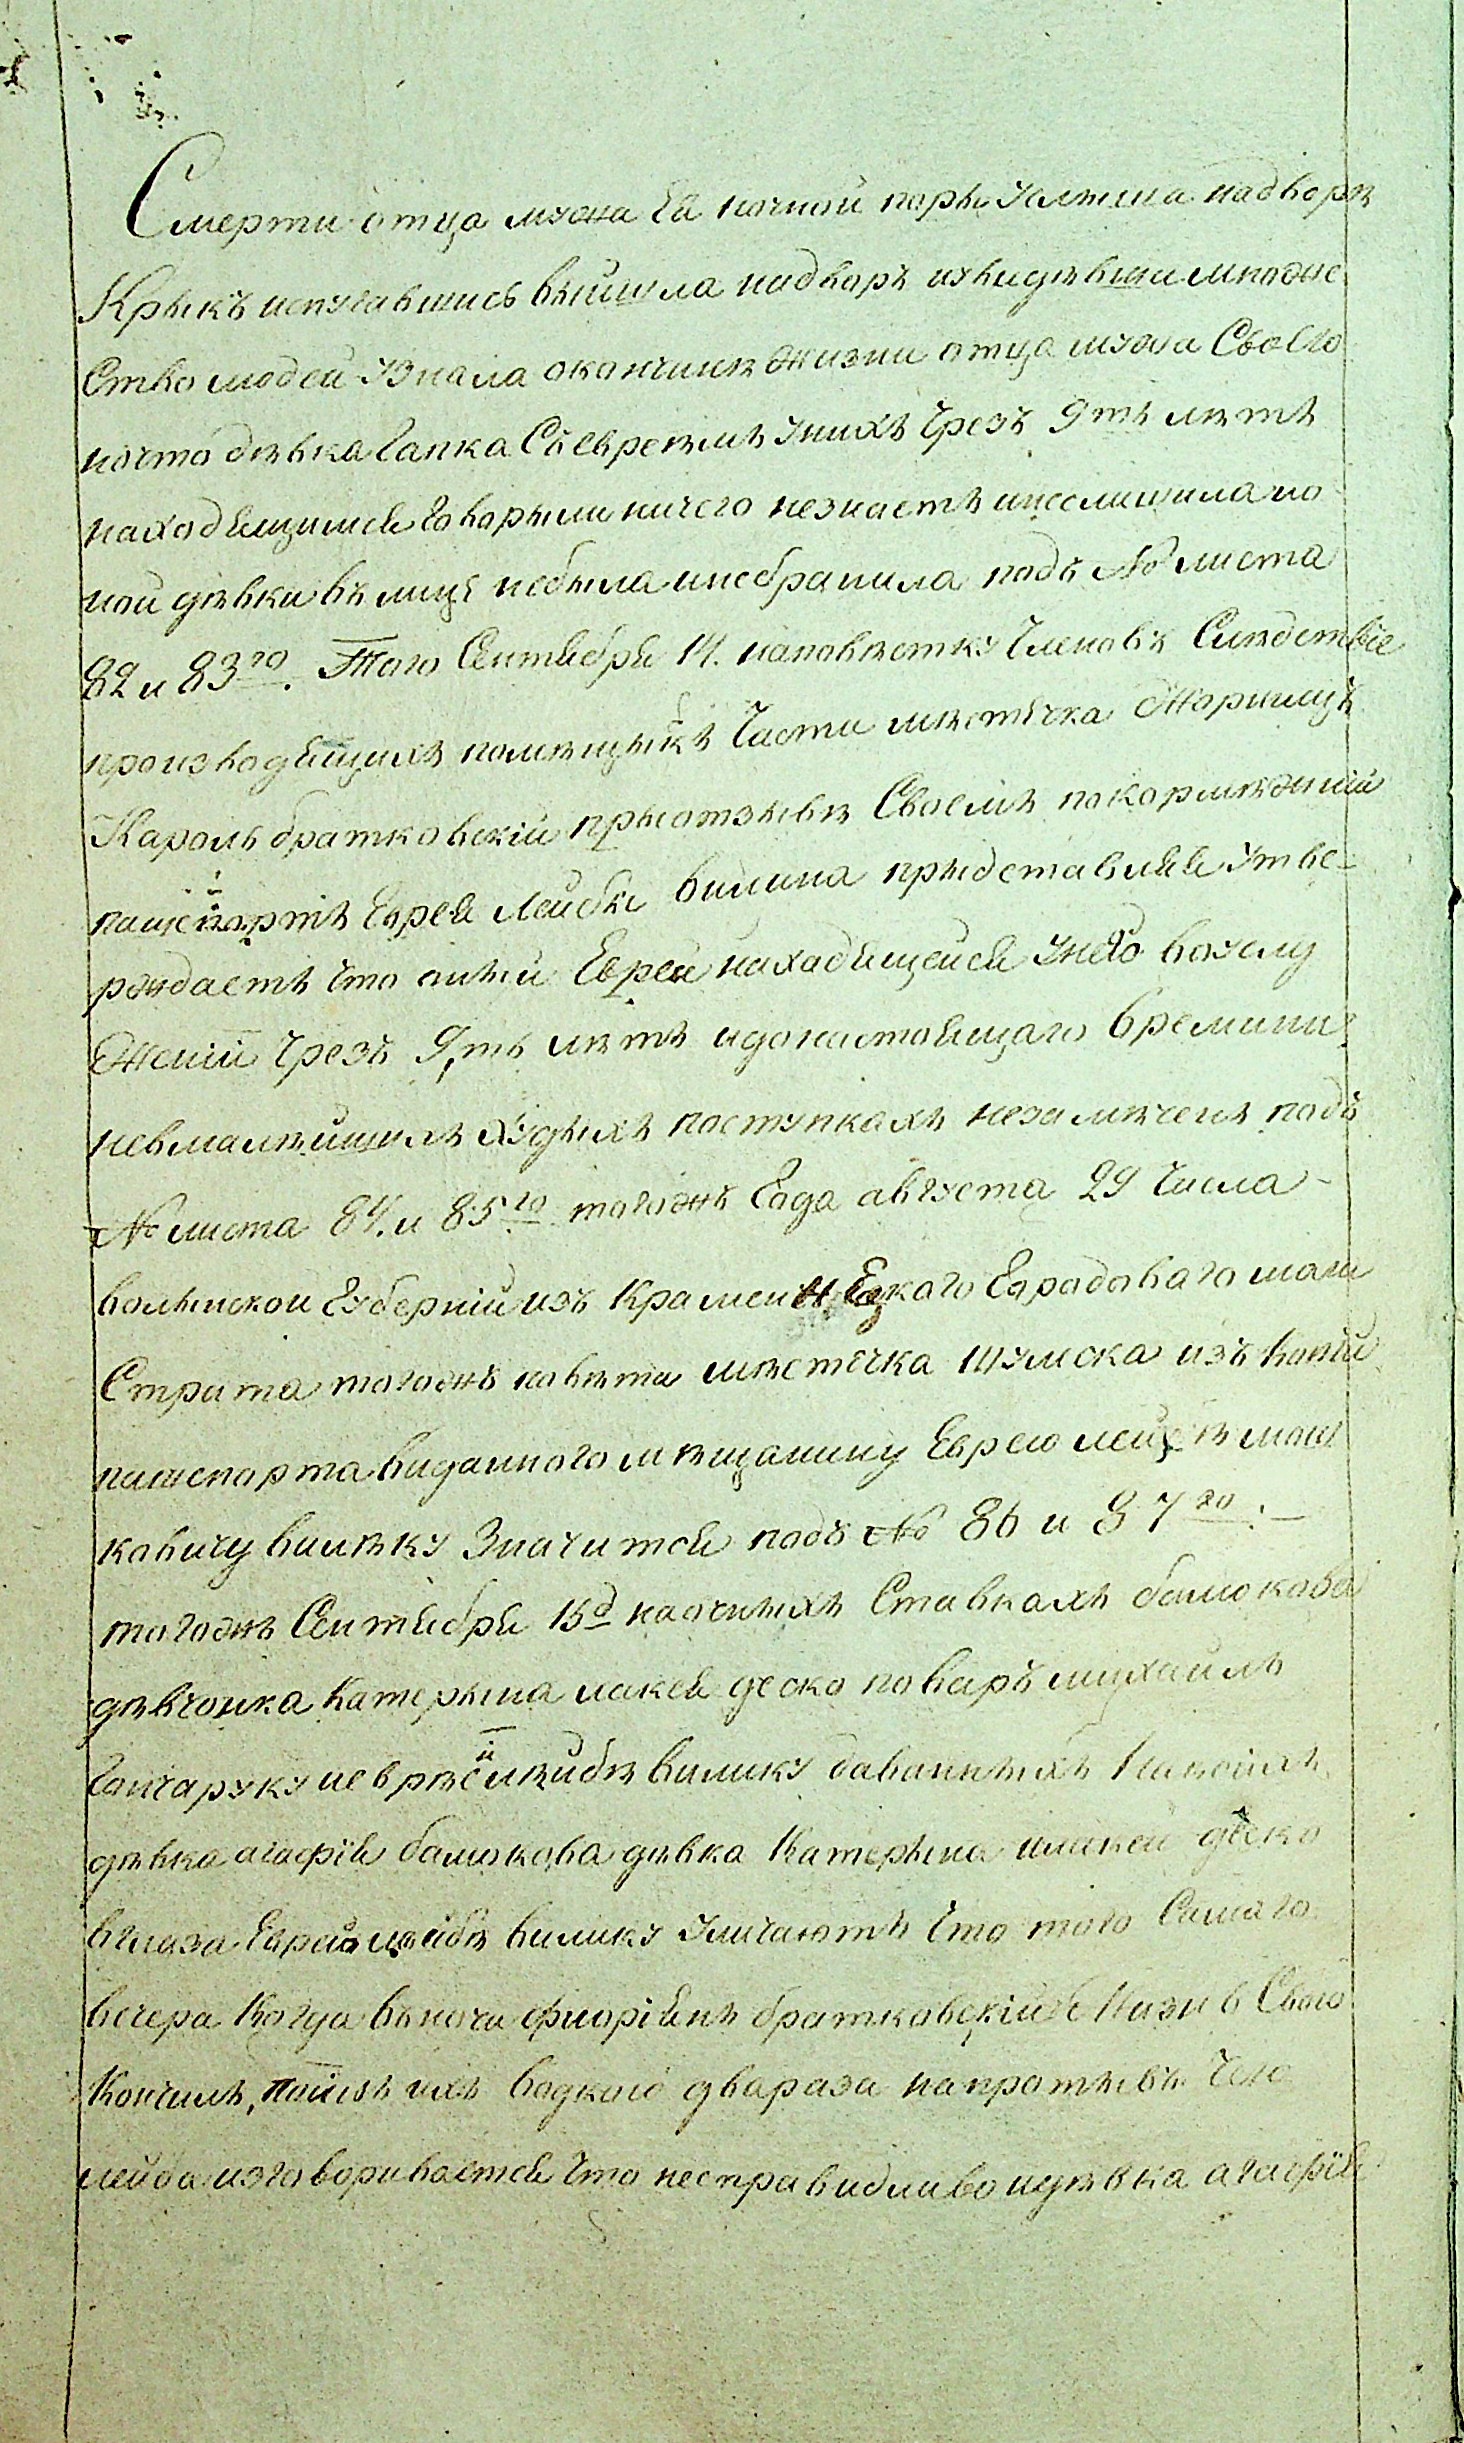 Смерти отца мужа Ея ночной поры услышила надворѣ
Крыкъ испугавшись вѣйшла надворъ иувидѣвши множе
Ство людей узнала окончинѣ жизни отца мужа Своего
ночто дѣвка Гапка Съевреемъ унихъ Чрезъ 9тъ лѣтъ
находящимся говорыли ничего незнаетъ инеслишила по
ной дѣвки въ лицѣ небыла инебранила подъ № листа
82 и 83го. Того Сентября 14. наповѣстку Членовъ Слѣдствіе
производящихъ помѣщикъ Части мѣстечка Жорнищъ
Кароль братковскій прыотзывѣ Своемъ покормѣжний
пашепортъ Еврея Лейбы вилика прыдставляя утве-
рждаетъ Что онъй Еврей находящейся унего воуслу
Женіи Чрезъ 9,тъ лѣтъ идонастоящаго времини
невмалѣйшихъ худыхъ поступкахъ незамѣченъ подъ
№ листа 84. и 85го тогожъ Года августа 29 Числа -
волынской Губерніи изъ Кременецкого Городоваго маги
Страта тогожъ повѣта мѣстечка шумска изъ Копіи
пашепорта виданного мѣщанину Еврею лейбѣ мош
ковичу вилѣку Значится подъ № 86 и 87го. -
тогожъ Сентября 15д наочныхъ Ставкахъ балюкова
дѣвчонка Катерына лакей деско поваръ михаилъ
Гончаруку иеврѣю лѣибѣ вилику даванныхъ
дѣвка агафія балюкова дѣвка Катерына илакей дѣско
вглаза Еврею лѣибѣ вилику уличаютъ Что того Самаго
вечера Когда вьночи флоріянъ братковскій Жизнь Свою
Кончилъ, поилъ ихъ водкою двараза напротывъ Чего
лейба изговоривается Что несправидливо идѣвка агафія